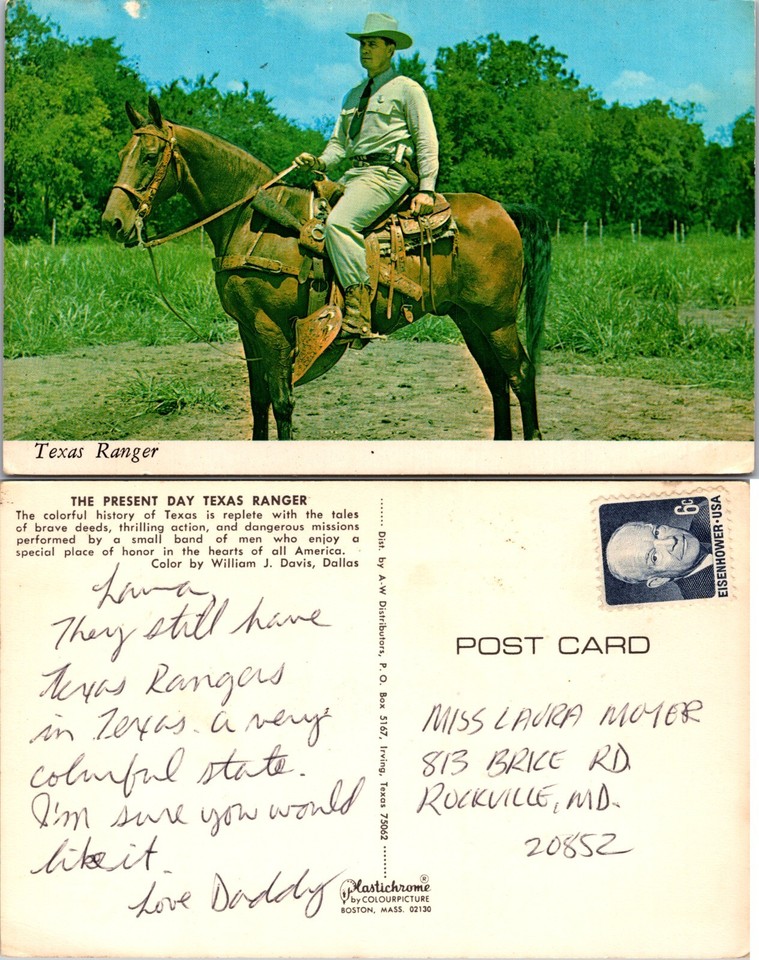 Texas Ranger
THE PRESENT DAY TEXAS RANGER
The colorful history of Texas is replete with the tales
of brave deeds, thrilling action, and dangerous missions
performed by a small band of men who enjoy a
special place of honor in the hearts of all America.
Color by William J. Davis, Dallas
Laura,
They still have
Texas Rangers
in Texas. a very
colourful state.
I'm sure you would
like it.
Love Daddy
Dist. by A-W Distributors, P. O. Box 5167, Irving, Texas 75062
Plastichrome®
by COLOURPICTURE
BOSTON, MASS. 02130
6c
EISENHOWER·USA
POST CARD
MISS LAURA MOYER
813 BRICE RD.
ROCKVILLE, MD.
20852